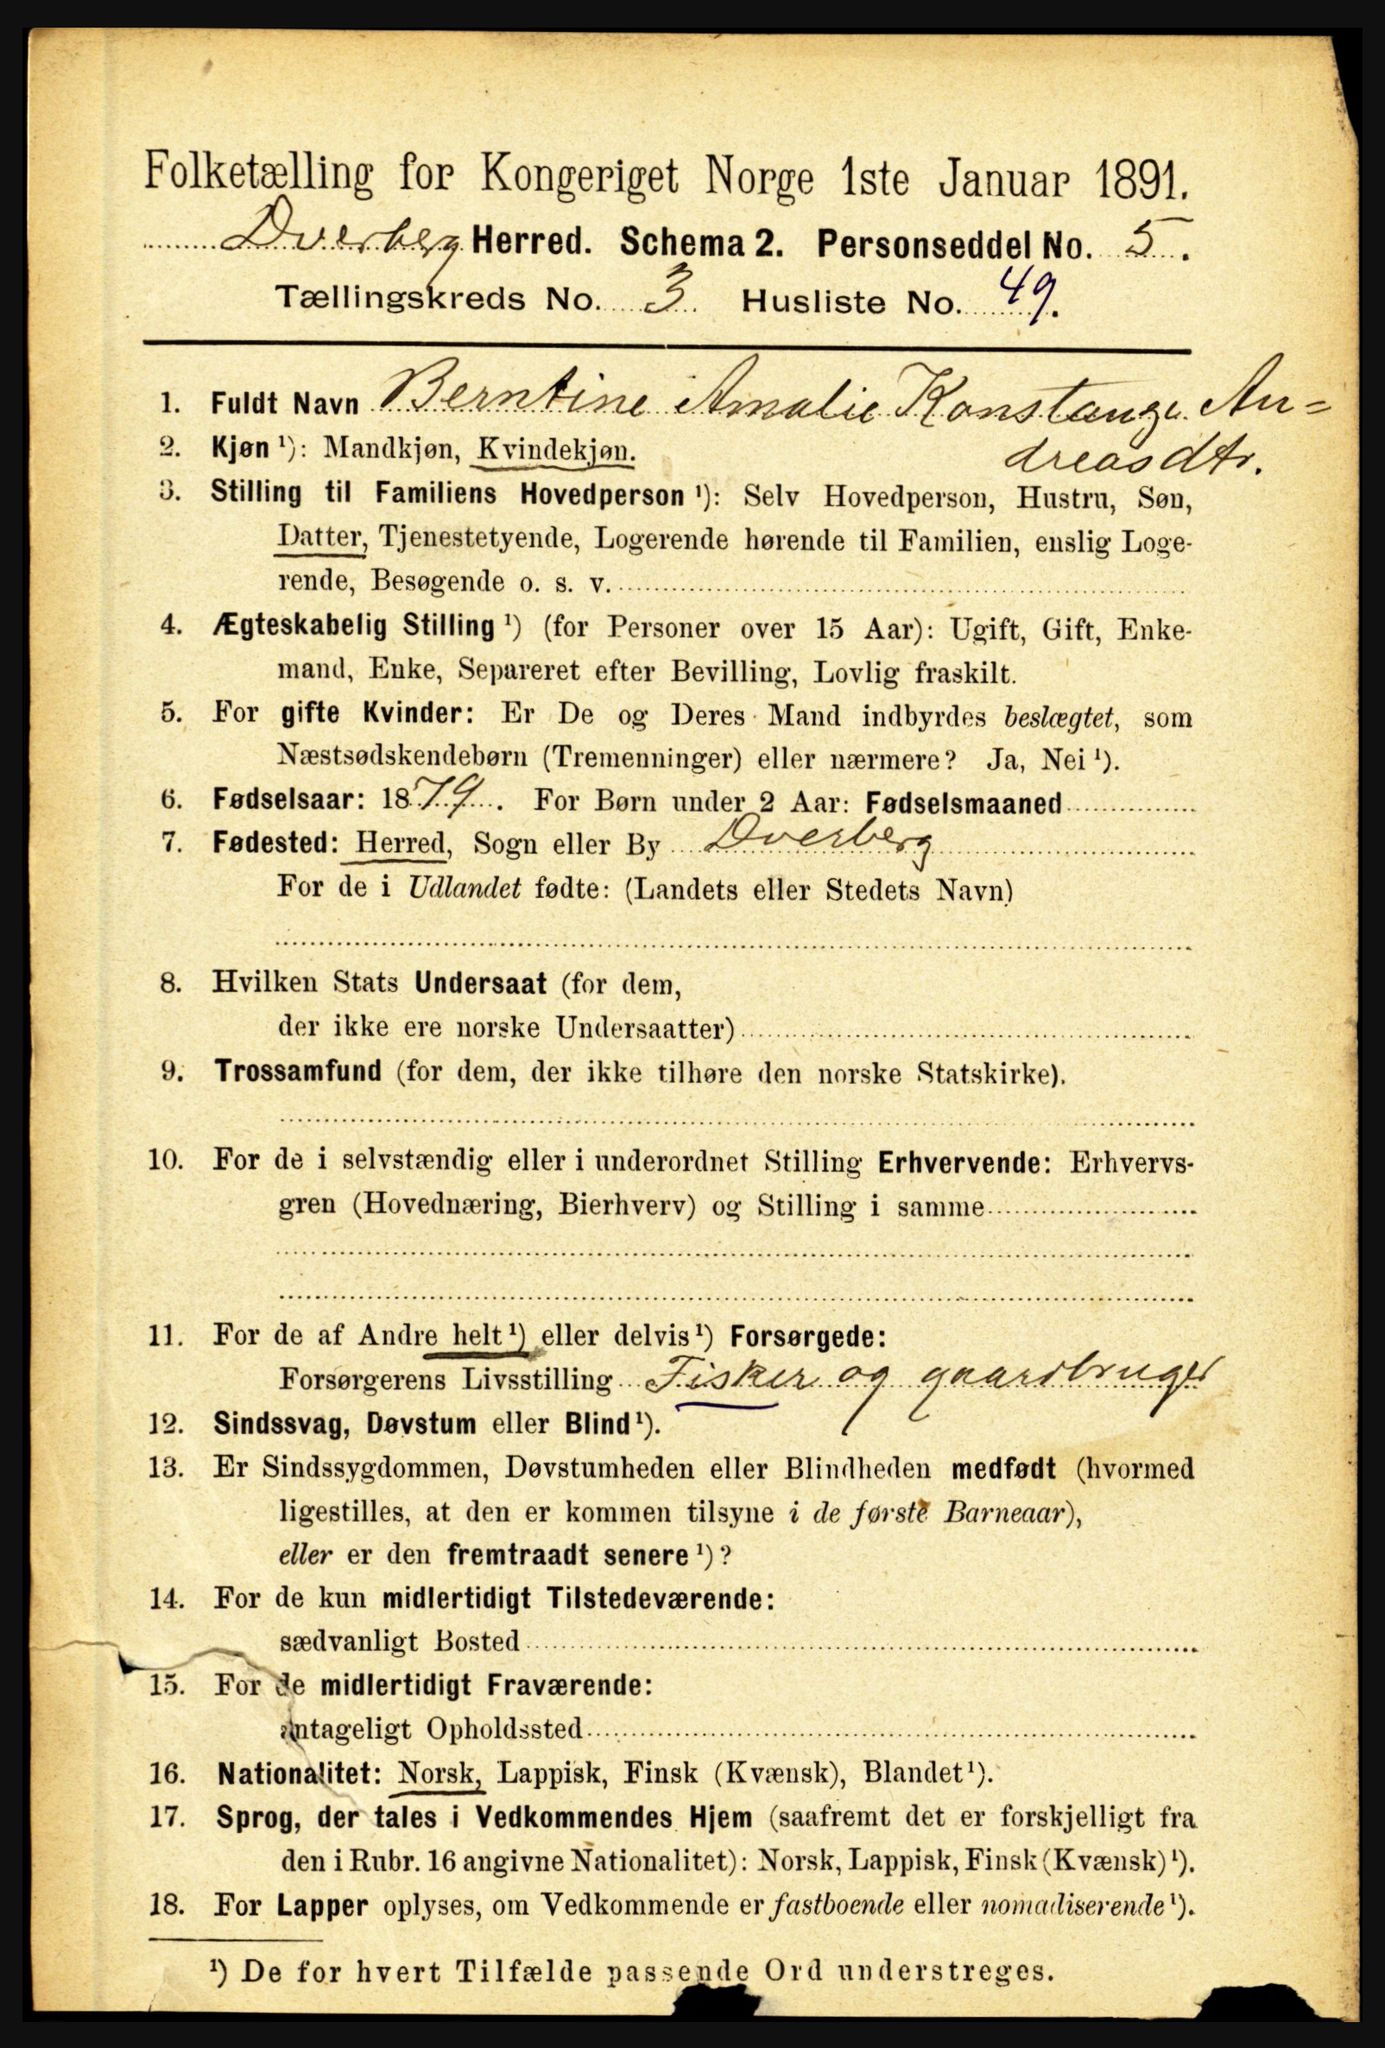 Folketælling for Kongeriget Norge 1ste Januar 1891.
Dverberg Herred. Schema 2. Personseddel No. 5.
Tællingskreds No. 3 Husliste No. 49.
1. Fuldt Navn Berntine Amalie Konstanze An=
dreasdtr.
2. Kjøn ¹): Mandkjøn, Kvindekjøn.
3. Stilling til Familiens Hovedperson ¹): Selv Hovedperson, Hustru, Søn,
Datter, Tjenestetyende, Logerende hørende til Familien, enslig Loge-
rende, Besøgende o. s. v.
4. Ægteskabelig Stilling ¹) (for Personer over 15 Aar): Ugift, Gift, Enke-
mand, Enke, Separeret efter Bevilling, Lovlig fraskilt.
5. For gifte Kvinder: Er De og Deres Mand indbyrdes beslægtet, som
Næstsødskendebørn (Tremenninger) eller nærmere? Ja, Nei ¹).
6. Fødselsaar: 1879. For Børn under 2 Aar: Fødselsmaaned
7. Fødested: Herred, Sogn eller By Dverberg
For de i Udlandet fødte: (Landets eller Stedets Navn)
8. Hvilken Stats Undersaat (for dem,
der ikke ere norske Undersaatter)
9. Trossamfund (for dem, der ikke tilhøre den norske Statskirke).
10. For de i selvstændig eller i underordnet Stilling Erhvervende: Erhvervs-
gren (Hovednæring, Bierhverv) og Stilling i samme
11. For de af Andre helt ¹) eller delvis ¹) Forsørgede:
Forsørgerens Livsstilling Fisker og gaardbruger
12. Sindssvag, Døvstum eller Blind ¹).
13. Er Sindssygdommen, Døvstumheden eller Blindheden medfødt (hvormed
ligestilles, at den er kommen tilsyne i de første Barneaar),
eller er den fremtraadt senere ¹)?
14. For de kun midlertidigt Tilstedeværende:
sædvanligt Bosted
15. For de midlertidigt Fraværende:
antageligt Opholdssted
16. Nationalitet: Norsk, Lappisk, Finsk (Kvænsk), Blandet ¹).
17. Sprog, der tales i Vedkommendes Hjem (saafremt det er forskjelligt fra
den i Rubr. 16 angivne Nationalitet): Norsk, Lappisk, Finsk (Kvænsk) ¹).
18. For Lapper oplyses, om Vedkommende er fastboende eller nomadiserende ¹).
¹) De for hvert Tilfælde passende Ord understreges.